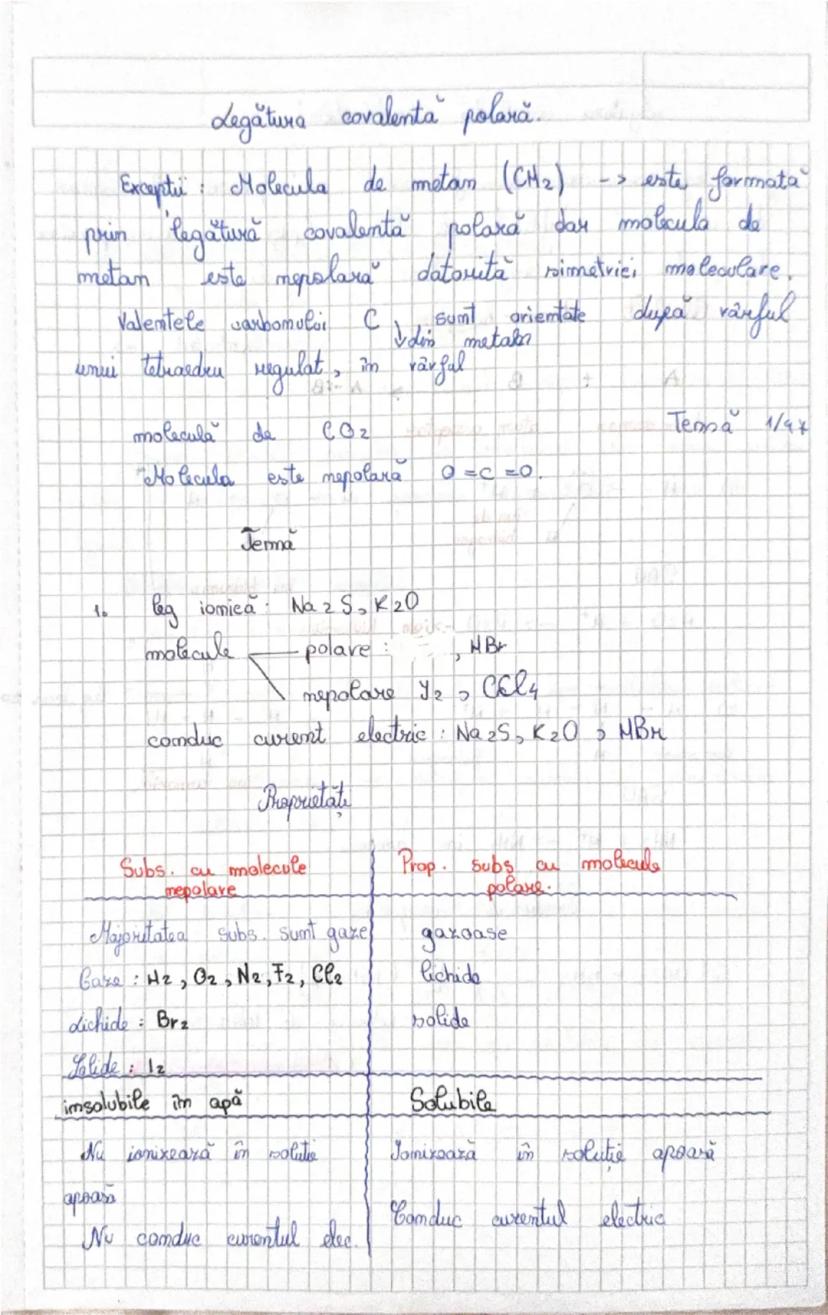 Legătura covalentă polară.
Excepții : Molecula de metan (CH2) -> este formată
prin legătură covalentă polară dar molecula de
metan este nepolară datorită simetriei moleculare.
Valențele carbonului C sunt orientate după vârful
↓ din metan
unui tetraedru regulat, în vârful
moleculă de CO2 Temă 1/97
Molecula este nepolară O=C=O.
Temă
1. leg ionică : Na2S, K2O
molecule polare : , HBr
nepolare I2, CCl4
conduc curent electric : Na2S, K2O, HBr
Proprietăți
Subs. cu molecule nepolare
Prop. subs cu molecule polare.
Majoritatea subs. sunt gaze
Gaze : H2, O2, N2, F2, Cl2
Lichide : Br2
Solide : I2
gazoase
lichide
solide
insolubile în apă
Solubile
Nu ionizează în soluție
apoasă
Nu conduc curentul elec.
Ionizează în soluție apoasă
Conduc curentul electric